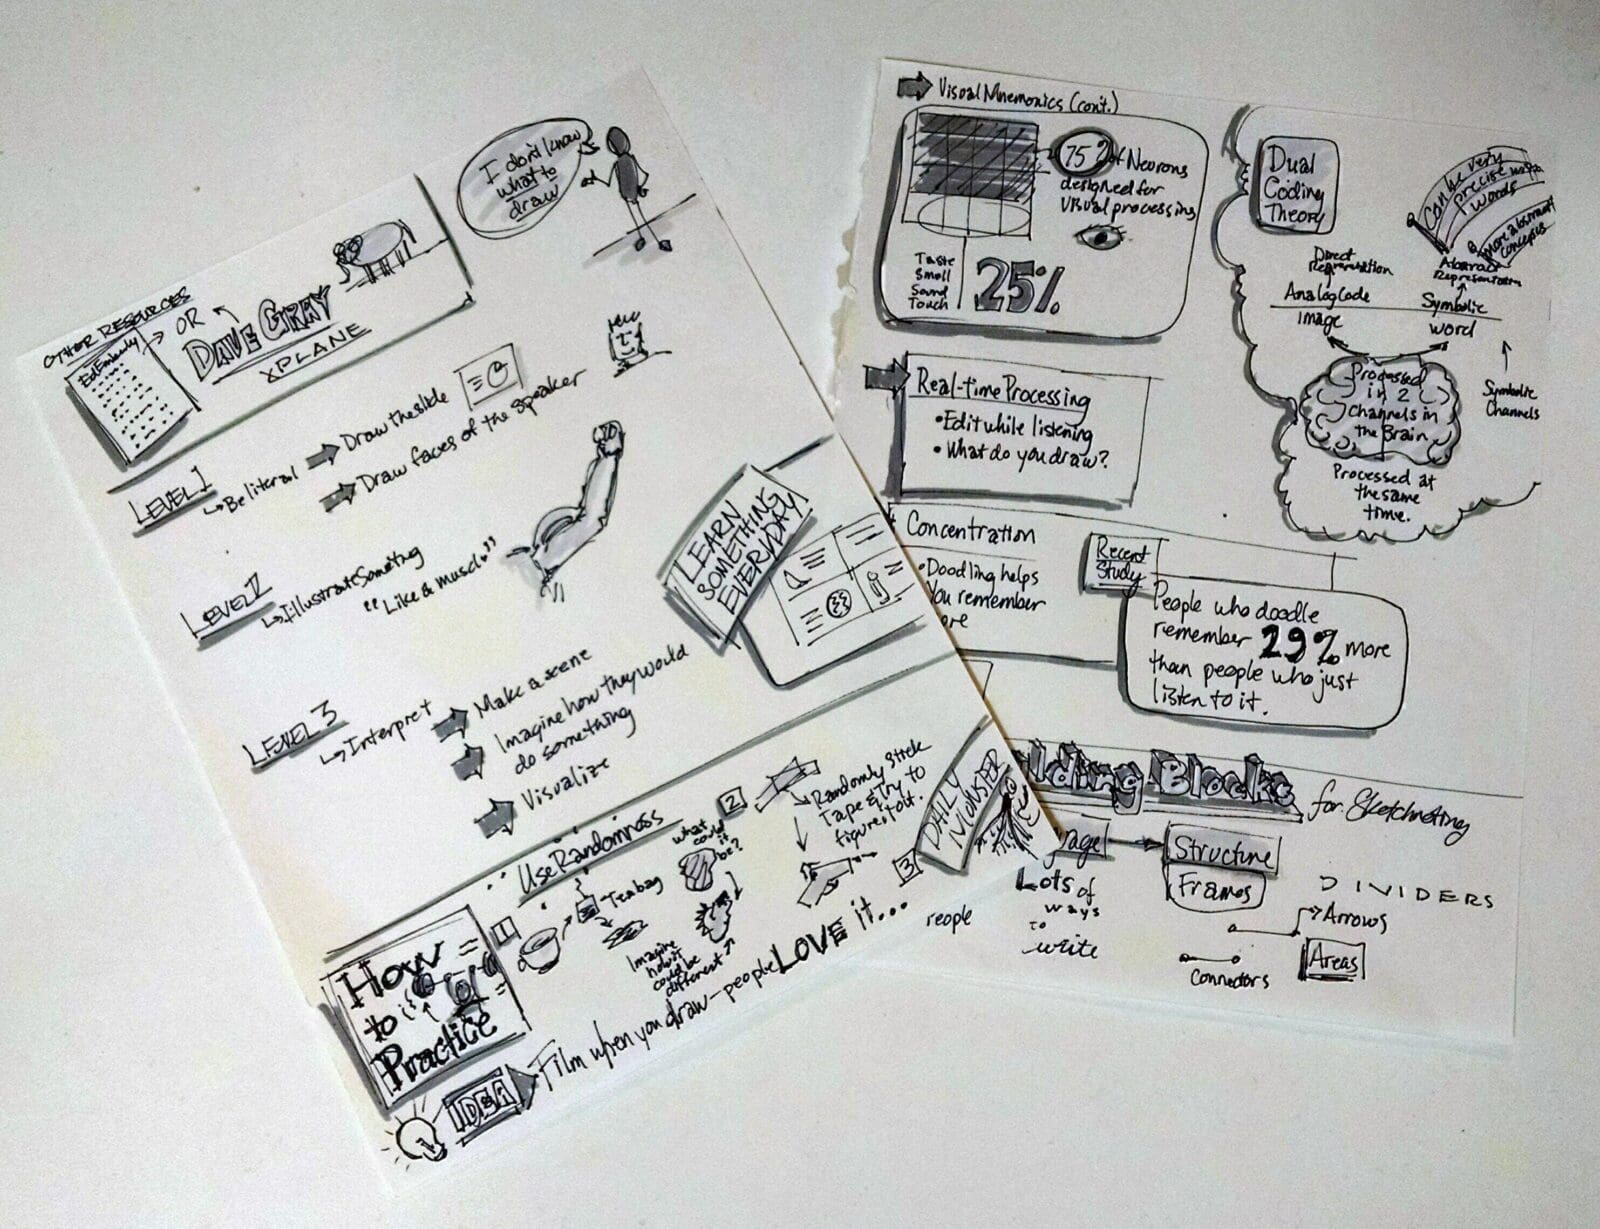 I don't know
what to
draw
OTHER RESOURCES
Ed Emberly
OR
DAVE GRAY
XPLANE
LEVEL 1
Be literal
Draw the slide
Draw faces of the speaker
LEVEL II
Illustrate Something
"Like a muscle"
LEARN
SOMETHING
EVERYDAY
LEVEL 3
Interpret
Make a scene
Imagine how they would
do something
Visualize
Use Randomness
How
to
Practice
1
Teabag
What
could
it
be?
Imagine
how it
could be
different
2
Randomly Stick
Tape & Try to
figure it out.
3
DAILY
MONSTER
IDEA
Film when you draw - people LOVE it...
Visual Mnemonics (cont.)
75% of Neurons
designed for
visual processing
Taste
Smell
Sound
Touch
25%
Dual
Coding
Theory
Can be very
precise
words
more abstract
concepts
Direct
Representation
Abstract
Representation
Analog Code
Symbolic
Image
word
Processed
in 2
channels in
the Brain
Symbolic
Channels
Processed at
the same
time.
Real-time Processing
• Edit while listening
• What do you draw?
Concentration
• Doodling helps
You remember
ore
Recent
Study
People who doodle
remember 29% more
than people who just
listen to it.
lding Blocks
for Sketchnoting
age
Structure
Lots of
ways
to
write
Frames
DIVIDERS
Arrows
Connectors
Areas
people